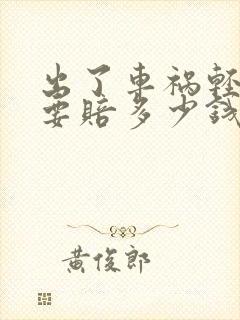 出了車禍輕
要賠多少錢
黃俊郎